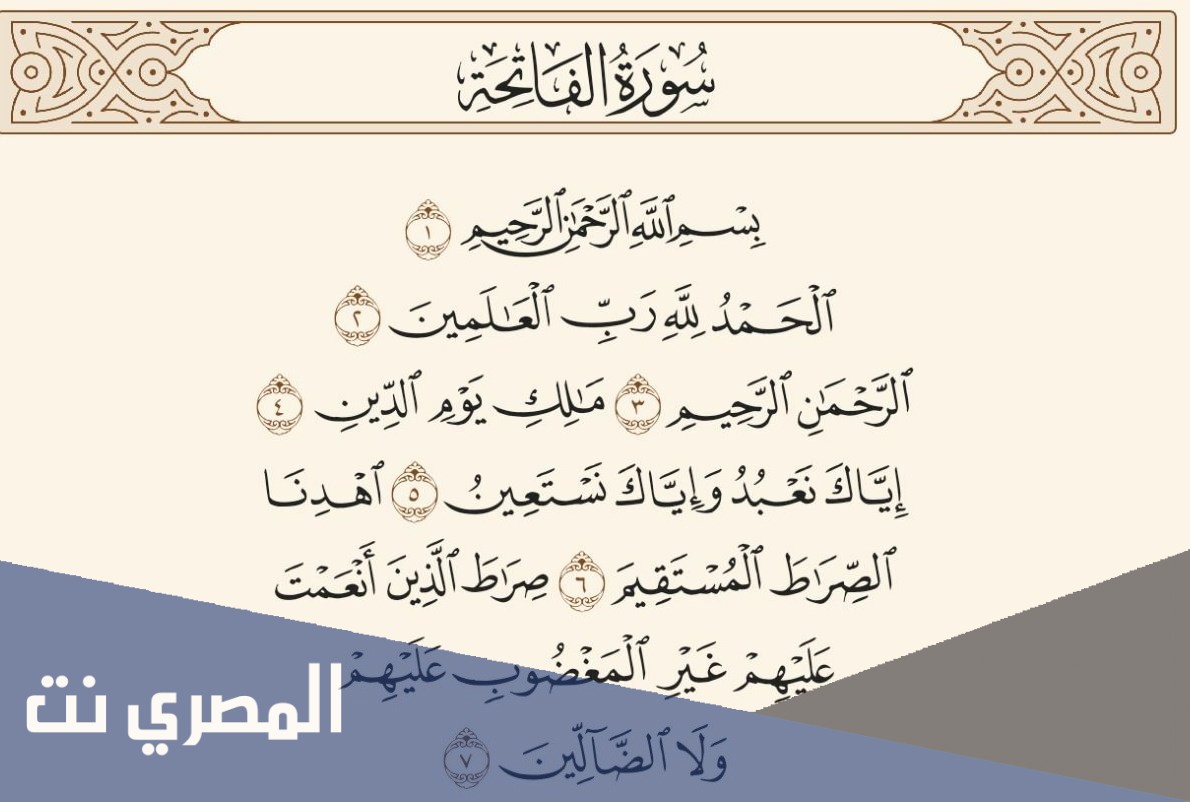 سُورَةُ الفَاتِحَةِ
بِسْمِ ٱللَّهِ ٱلرَّحْمَٰنِ ٱلرَّحِيمِ ١
ٱلْحَمْدُ لِلَّهِ رَبِّ ٱلْعَٰلَمِينَ ٢
ٱلرَّحْمَٰنِ ٱلرَّحِيمِ ٣ مَٰلِكِ يَوْمِ ٱلدِّينِ ٤
إِيَّاكَ نَعْبُدُ وَإِيَّاكَ نَسْتَعِينُ ٥ ٱهْدِنَا
ٱلصِّرَٰطَ ٱلْمُسْتَقِيمَ ٦ صِرَٰطَ ٱلَّذِينَ أَنْعَمْتَ
عَلَيْهِمْ غَيْرِ ٱلْمَغْضُوبِ عَلَيْهِمْ
وَلَا ٱلضَّآلِّينَ ٧
المصري نت